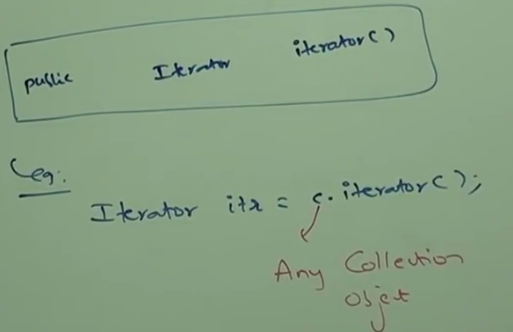 public Iterator iterator()
eg:
Iterator itr = c.iterator();
Any Collection
object